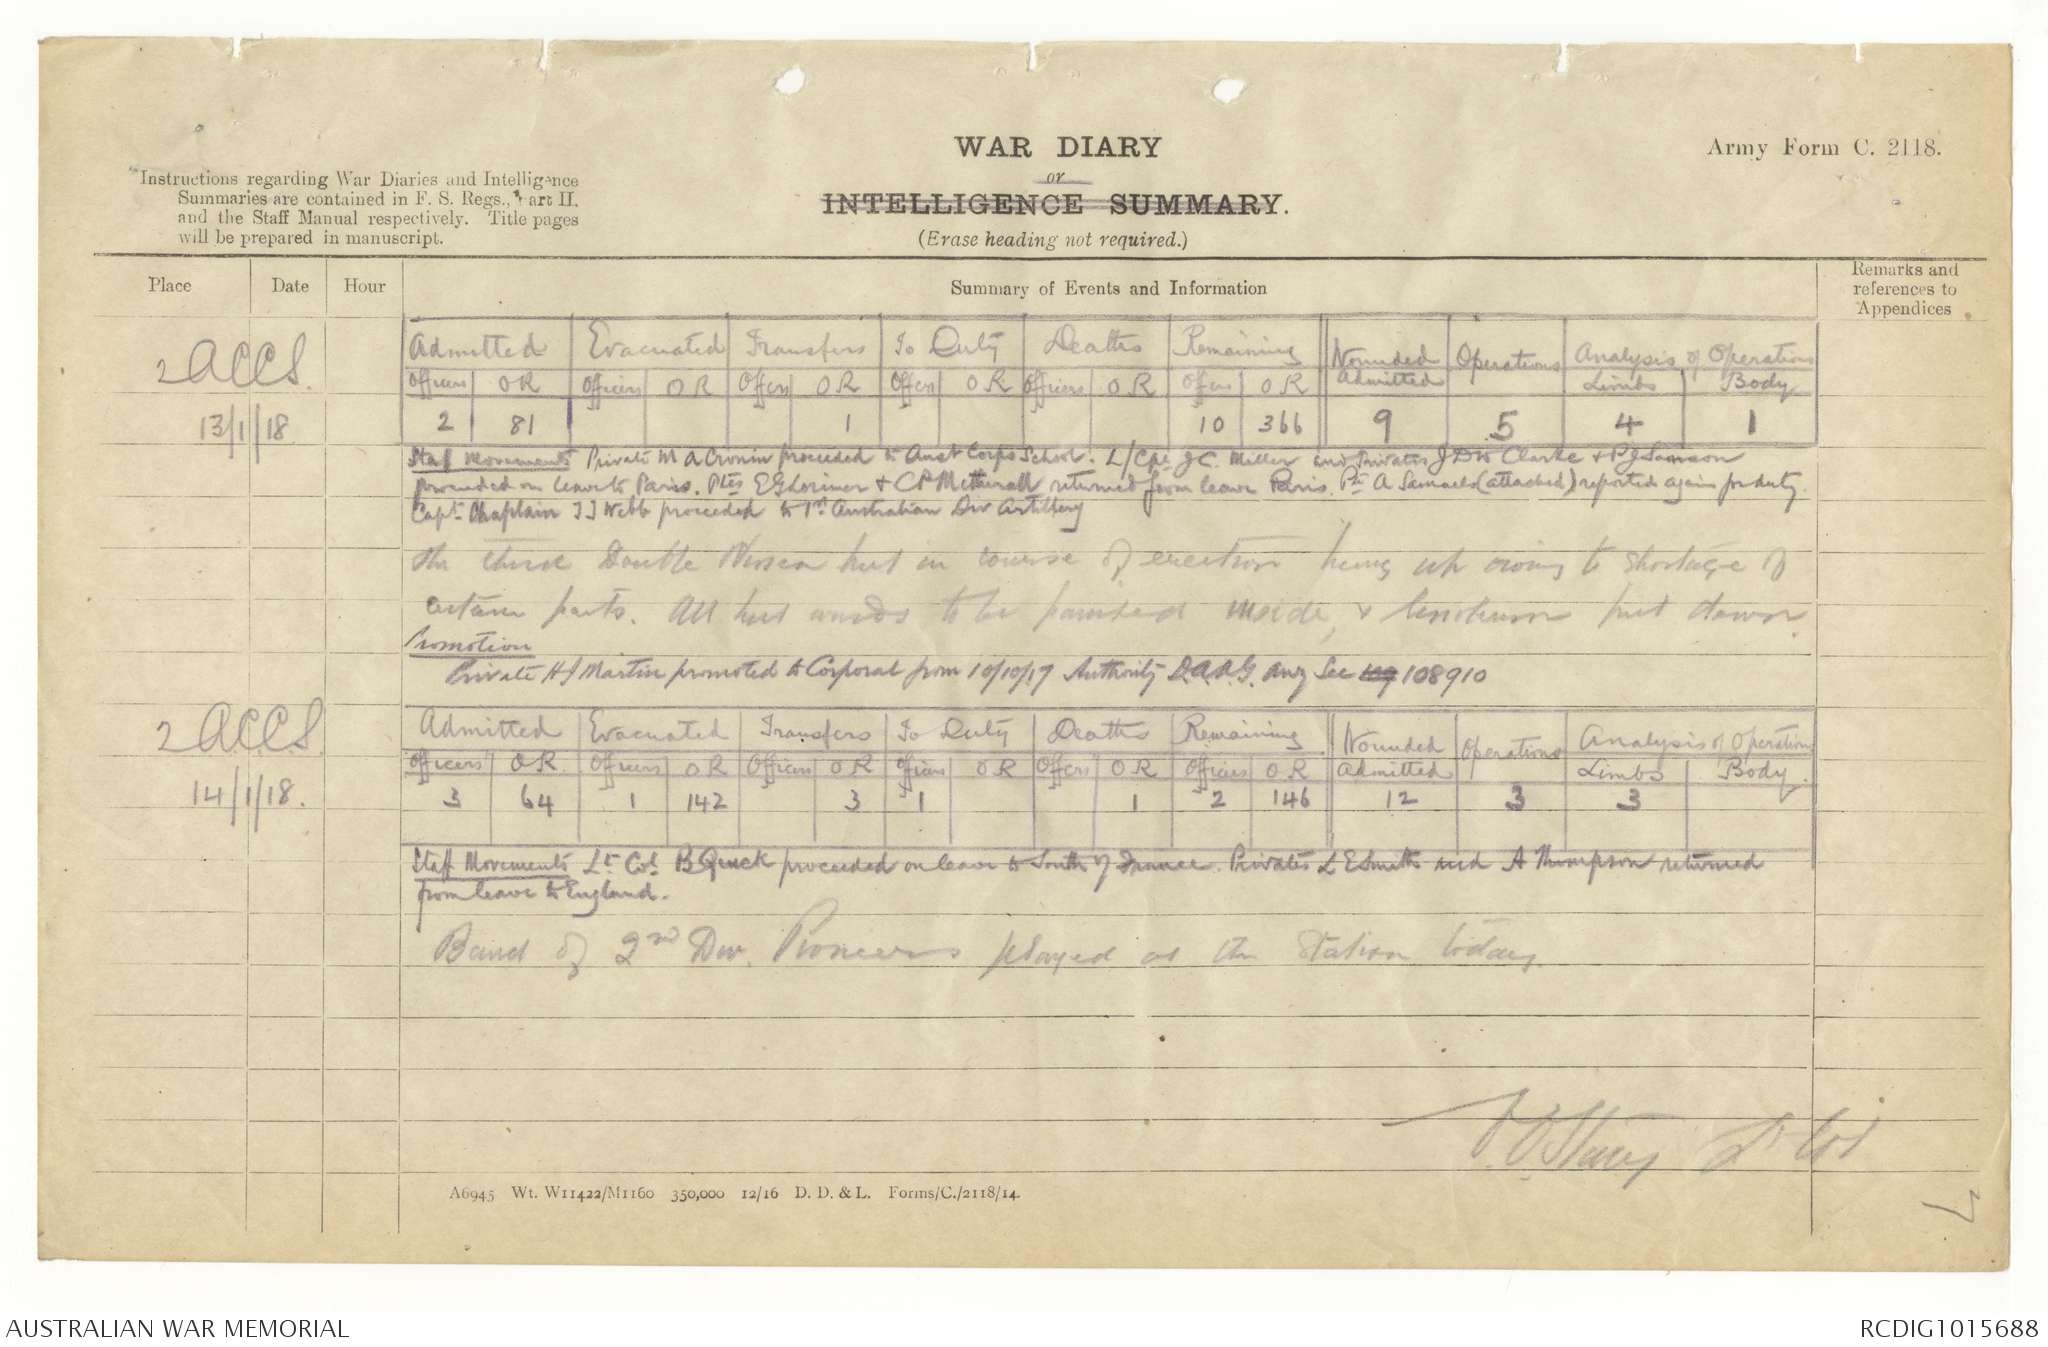 WAR DIARY
or
INTELLIGENCE SUMMARY.
(Erase heading not required.)
Army Form C. 2118.
Instructions regarding War Diaries and Intelligence
Summaries are contained in F. S. Regs., Part II.
and the Staff Manual respectively. Title pages
will be prepared in manuscript.
Place Date Hour Summary of Events and Information Remarks and references to Appendices
2 ACCS.
13/1/18
Admitted Evacuated Transfers To Duty Deaths Remaining Wounded Admitted Operations Analysis of Operations
Officers OR Officers OR Offcrs OR Offcrs OR Officers OR Offcrs OR Limbs Body
2 81 1 10 366 9 5 4 1
Staff Movements Private M A Cronin proceeded to Aust Corps School. L/Cpl J C. Miller and Privates J D W Clarke & P J Samson
proceeded on leave to Paris. Ptes E G Lorimer & C P Metherall returned from leave Paris. Pte A Samuels (attached) reported again for duty.
Capt. Chaplain T J Webb proceeded to 1st Australian Div Artillery
The third Double Nissen hut in course of erection hung up owing to shortage of
certain parts. All hut wards to be painted inside, & linoleum put down.
Promotion
Private H J Martin promoted to Corporal from 10/10/17 Authority D.A.A.G. Anz Sec 108910
2 ACCS.
14/1/18.
Admitted Evacuated Transfers To Duty Deaths Remaining Wounded Admitted Operations Analysis of Operations
Officers OR. Officers OR Officers OR Officers OR Offcrs OR Officers O.R. Limbs Body.
3 64 1 142 3 1 1 2 146 12 3 3
Staff Movements Lt. Col. B Quick proceeded on leave to South of France. Privates L E Smith and A Thompson returned
from leave to England.
Band of 2nd Div. Pioneers played at the Station today.
Lt Col
7
A6945 Wt. W11422/M1160 350,000 12/16 D. D. & L. Forms/C./2118/14.
AUSTRALIAN WAR MEMORIAL
RCDIG1015688